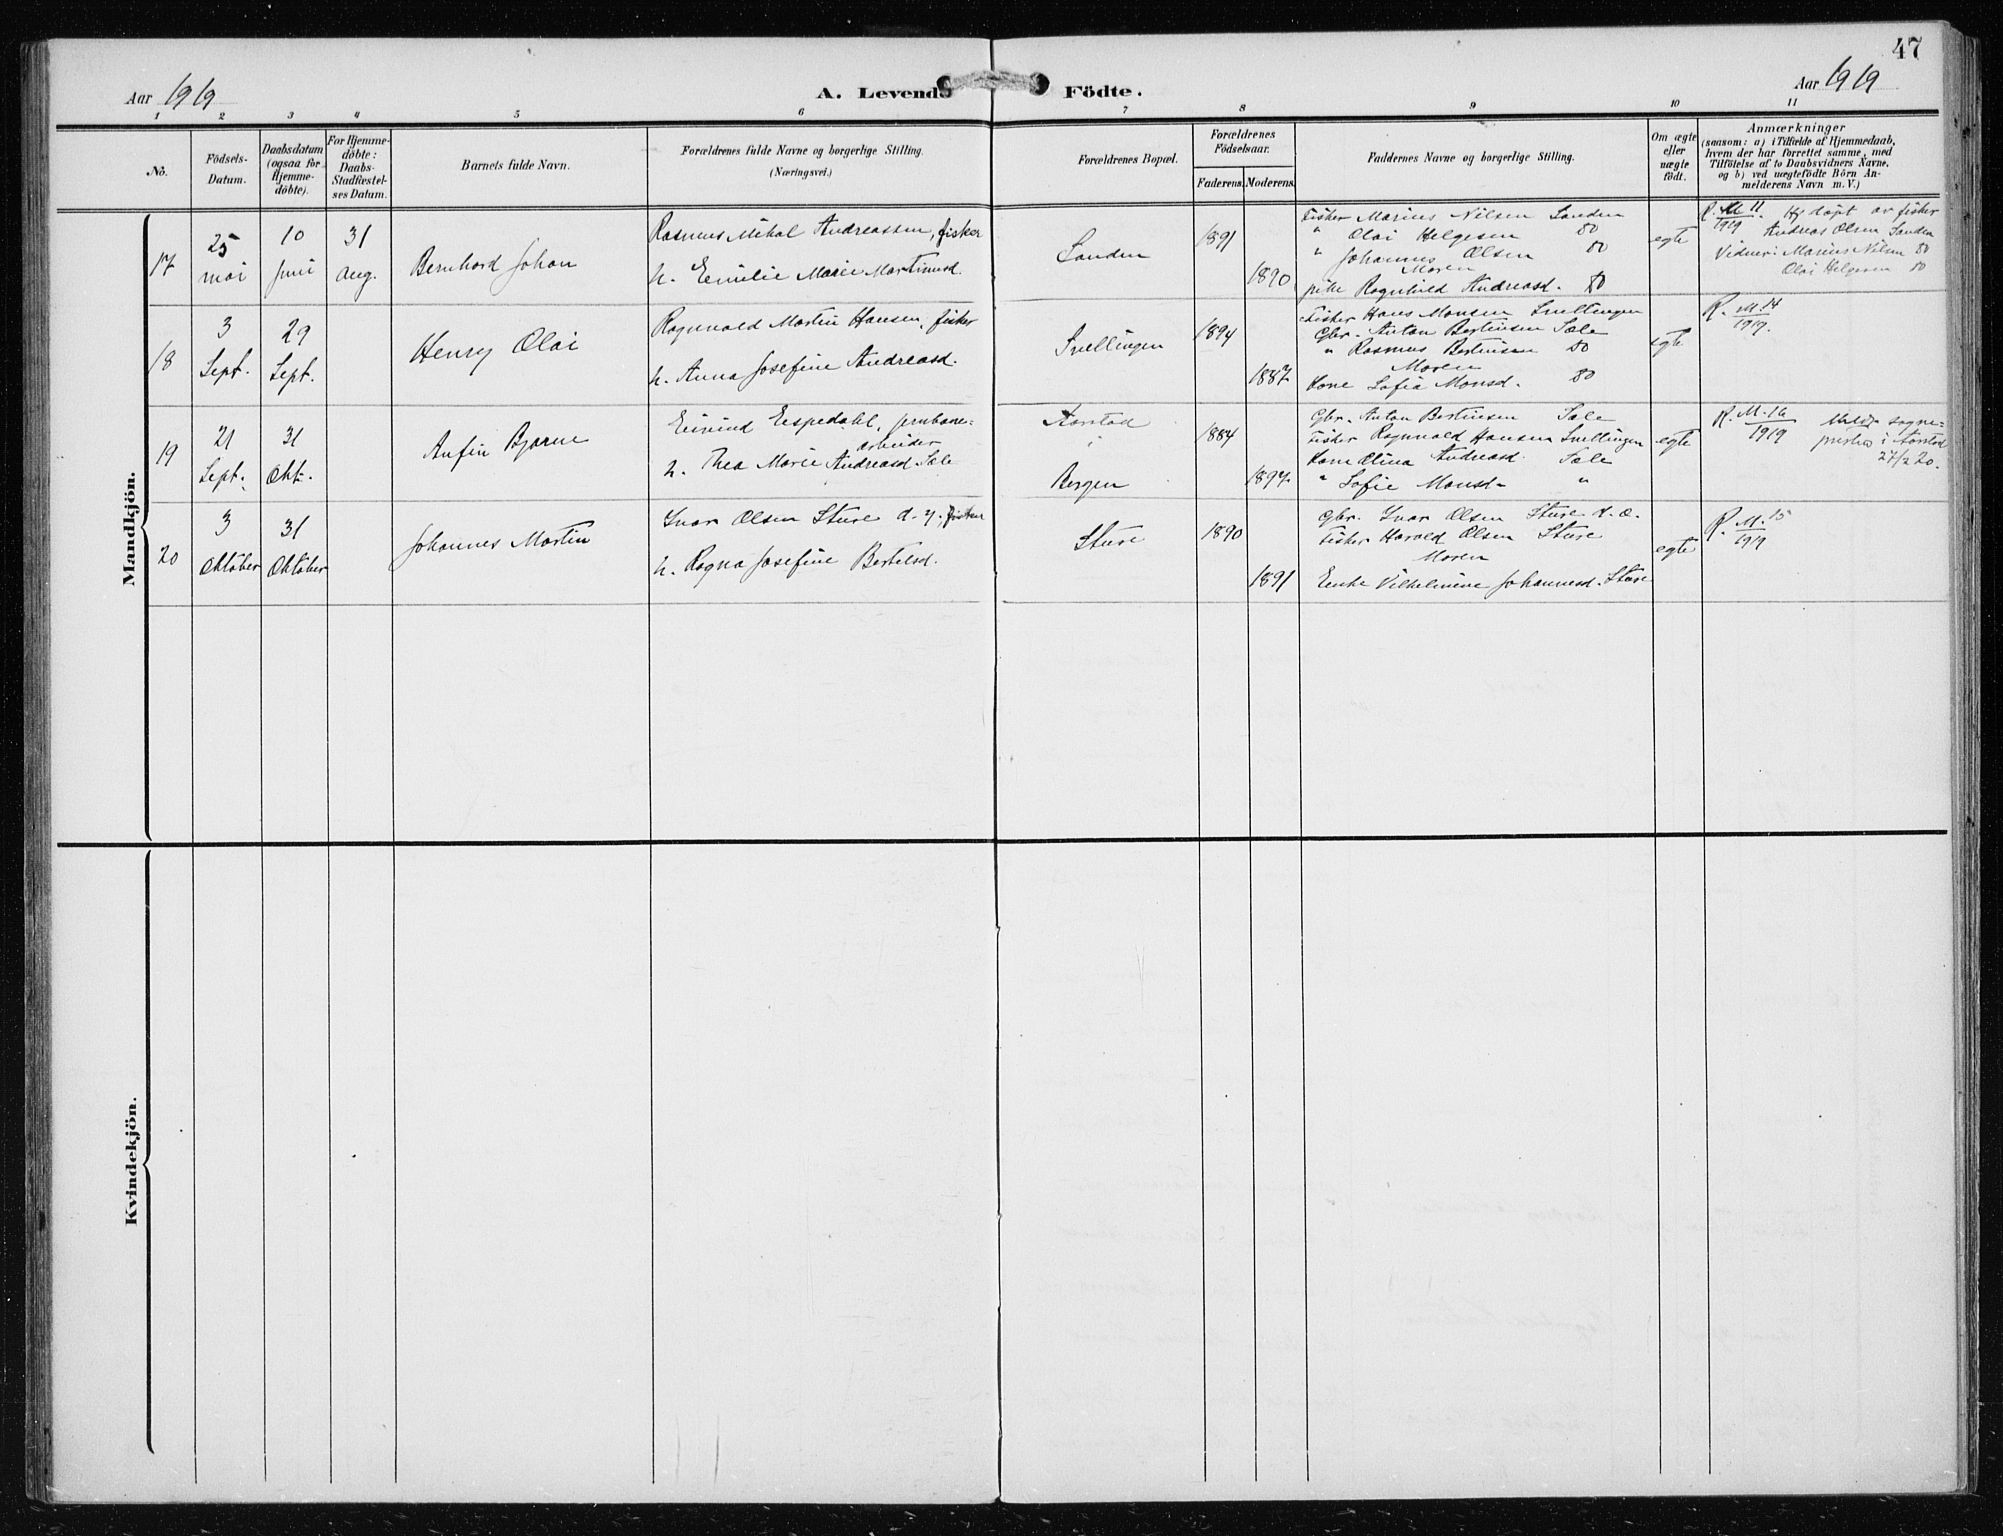 47
Aar 1919
A. Levende Födte.
Aar 1919
1 2 3 4 5 6 7 8 9 10 11
No.
Födsels-
Datum.
Daabsdatum
(ogsaa for
Hjemme-
döbte).
For Hjemme-
döbte:
Daabs-
Stadfæstel-
ses Datum.
Barnets fulde Navn.
Forældrenes fulde Navne og borgerlige Stilling.
(Næringsvei.)
Forældrenes Bopæl.
Forældrenes
Födselsaar.
Faderens. Moderens.
Faddernes Navne og borgerlige Stilling.
Om ægte
eller
uægte
født.
Anmærkninger
(saasom: a) i Tilfælde af Hjemmedaab,
hvem der har forrettet samme, med
Tilföielse af to Daabsvidners Navne,
og b) ved uægtefödte Börn An-
melderens Navn m. V.)
Mandkjön.
17
25
mai
10
juni
31
aug.
Bernhard Johan
Rasmus Mikal Andreassen, fisker
h. Emilie Marie Martinusd.
Sanden
1891
1890
Fisker Marius Nilsen Sanden
" Olai Helgesen do
" Johannes Olsen do
Moren
pike Ragnhild Andreasd. do
egte
R. M. 11
1919
Hj. döpt av fisker
Andreas Olsen Sanden
Vidner: Marius Nilsen do
Olai Helgesen do
18
3
Sept.
29
Sept.
Henry Olai
Ragnvald Martin Hansen, fisker
h. Anna Josefine Andreasd.
Snellingen
1894
1887
Fisker Hans Monsen Snellingen
Gbr. Anton Bertinsen Sæle
" Rasmus Bertinsen do
Moren
Kone Sofia Monsd. do
egte
R. M. 14
1919.
19
21
Sept.
31
Okt.
Anfin Bjarne
Eivind Espedahl, jernbane-
arbeider
h. Thea Marie Andreasd Sæle
Aarstad
Bergen
1884
1894
Gbr. Anton Bertinsen Sæle
Fisker Ragnvald Hansen Snellingen
Kone Olina Andreasd. Sæle
" Sofie Monsd. "
egte
R. M. 16
1919
sogne-
presten i Aarstad
27/2 20.
20
3
Oktober
31
Oktober
Johannes Martin
Ivar Olsen Sture d. y., fisker
h. Ragna Josefine Bertelsd.
Sture
1890
1891
Gbr. Ivar Olsen Sture d. e.
Fisker Harald Olsen Sture
Moren
Enke Vilhelmine Johannesd. Sture
egte
R. M. 15
1919
Kvindekjön.